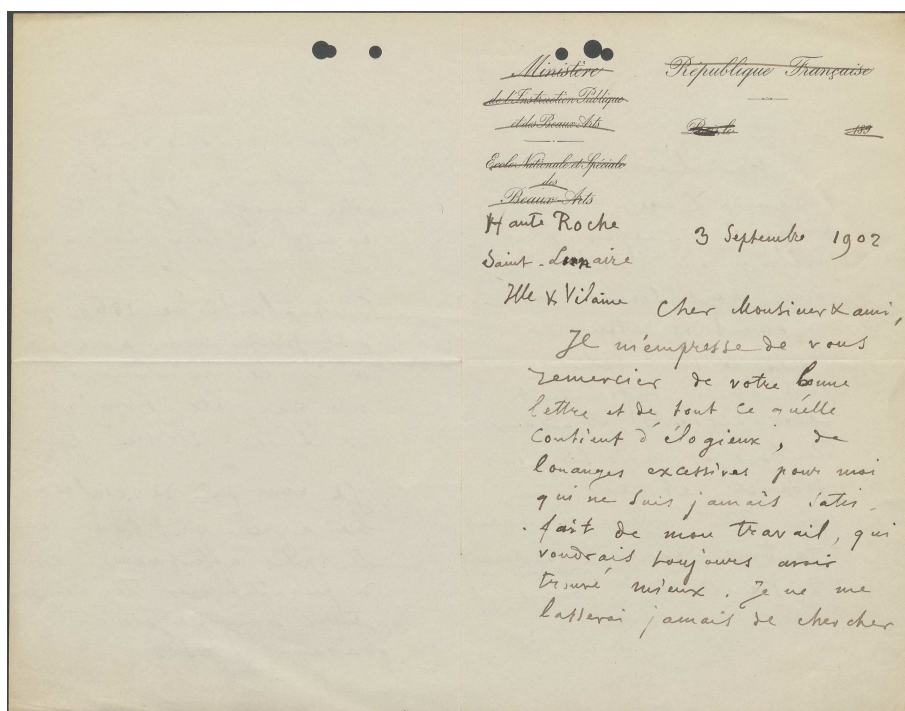 Ministère
de l'Instruction Publique
et des Beaux-Arts
Ecole Nationale et Spéciale
des
Beaux-Arts
République Française
Paris, le 189
Haute Roche
Saint-Lunaire
Ille & Vilaine
3 Septembre 1902
Cher Monsieur & ami,
Je m'empresse de vous
remercier de votre bonne
lettre et de tout ce qu'elle
contient d'élogieux, de
louanges excessives pour moi
qui ne suis jamais satis-
fait de mon travail, qui
voudrais toujours avoir
trouvé mieux. Je ne me
lasserai jamais de chercher